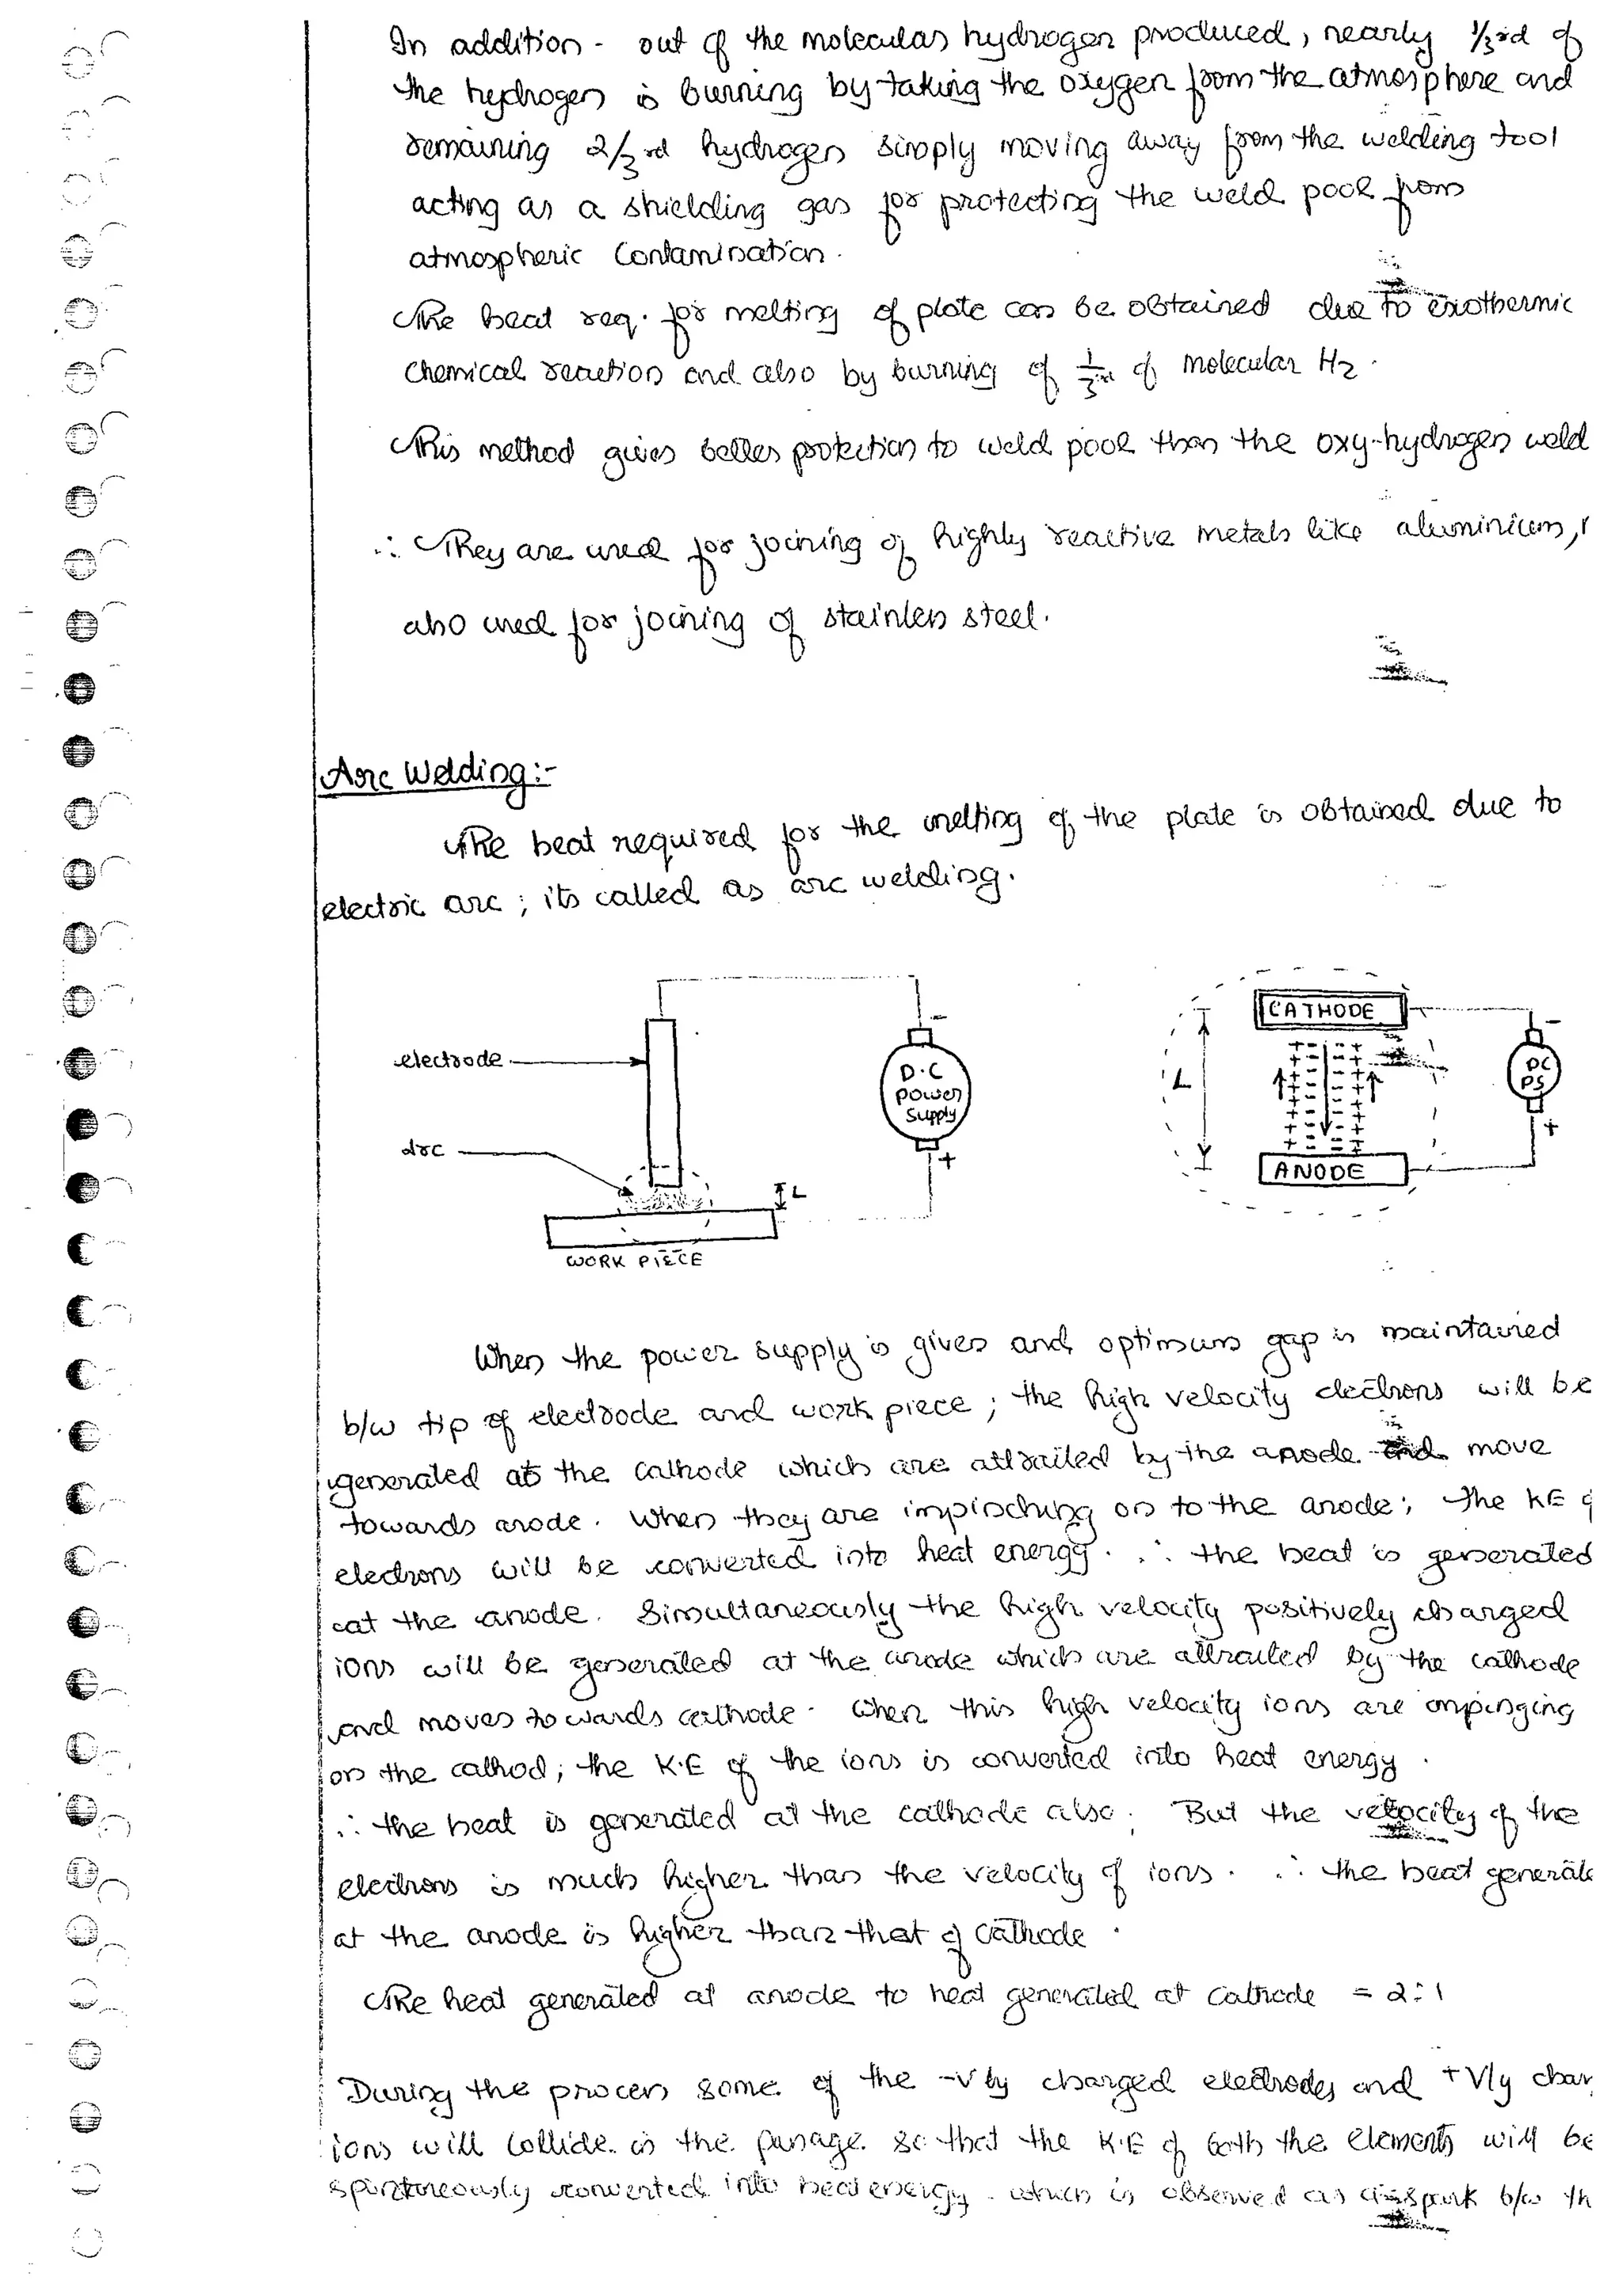 In addition - out of the molecular hydrogen produced, nearly 1/3rd of
the hydrogen is burning by taking the oxygen from the atmosphere and
remaining 2/3rd hydrogen simply moving away from the welding tool
acting as a shielding gas for protecting the weld pool from
atmospheric Contamination.
The heat req. for melting of plate can be obtained due to exothermic
chemical reaction and also by burning of 1/3rd of molecular H2.
This method gives better protection to weld pool than the oxy-hydrogen weld
∴ They are used for joining of highly reactive metals like aluminium,
also used for joining of stainless steel.
Arc Welding:-
The heat required for the melting of the plate is obtained due to
electric arc; its called as arc welding.
electrode
arc
WORK PIECE
L
D.C
power
supply
-
+
CATHODE
L
ANODE
DC
PS
-
+
When the power supply is given and optimum gap is maintained
b/w tip of electrode and work piece; the high velocity electrons will be
generated at the cathode which are attracted by the anode and move
towards anode. When they are impinching on to the anode; The KE of
electrons will be converted into heat energy. ∴ the heat is generated
at the anode. Simultaneously the high velocity positively charged
ions will be generated at the anode which are attracted by the cathode
and moves towards cathode. When this high velocity ions are impinging
on the cathod; the K.E of the ions is converted into heat energy.
∴ the heat is generated at the cathode also. But the velocity of the
electrons is much higher than the velocity of ions. ∴ the heat generate
at the anode is higher than that of Cathode.
The heat generated at anode to heat generated at Cathode = 2:1
During the process some of the -Vly charged electrodes and +Vly char
ions will collide in the passage so that the K.E of both the elements will be
spontaneously converted into heat energy. which is observed as spark b/w th